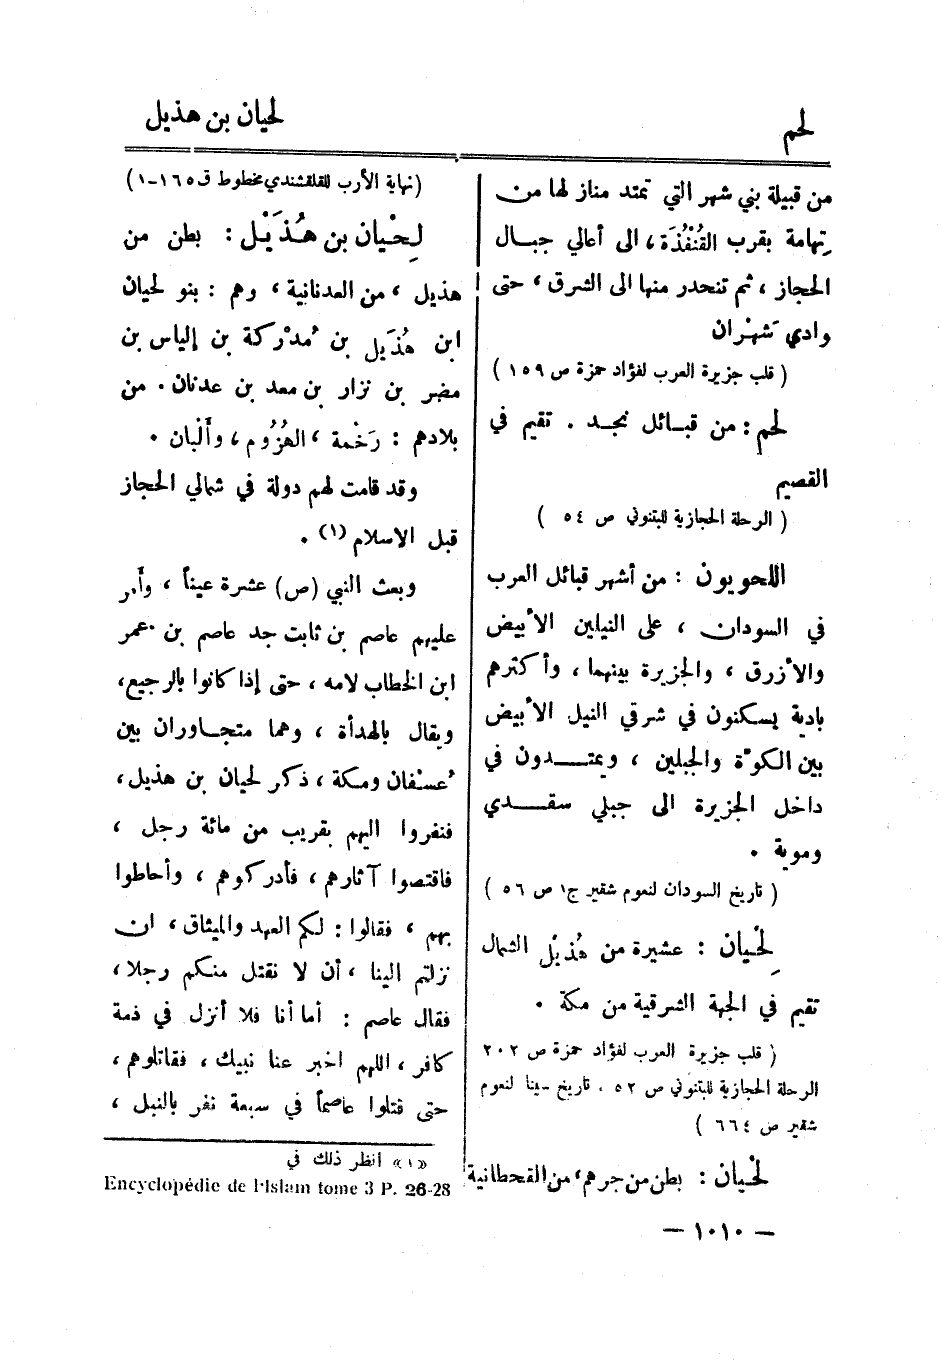 لحم
لحيان بن هذيل
من قبيلة بني شهر التي تمتد منازلها من
تِهامة بقرب القُنْفُذَة، الى أعالي جبال
الحجاز، ثم تنحدر منها الى الشرق، حتى
وادي شَهْران
( قلب جزيرة العرب لفؤاد حمزة ص ١٥٩ )
لحم : من قبائل نجد . تقيم في
القصيم
( الرحلة الحجازية للبتنوني ص ٥٤ )
اللحويون : من أشهر قبائل العرب
في السودان، على النيلين الأبيض
والأزرق، والجزيرة بينهما، وأكثرهم
بادية يسكنون في شرقي النيل الأبيض
بين الكوّة والجبلين، ويمتدون في
داخل الجزيرة الى جبلي سقدي
وموية .
( تاريخ السودان لنعوم شقير ج١ ص ٥٦ )
لِحْيان : عشيرة من هُذَيْل الشمال
تقيم في الجهة الشرقية من مكة .
( قلب جزيرة العرب لفؤاد حمزة ص ٢٠٢
الرحلة الحجازية للبتنوني ص ٥٢ . تاريخ سينا لنعوم
شقير ص ٦٦٤ )
لِحْيان : بطن من جرهم، من القحطانية
(نهاية الأرب للقلقشندي مخطوط ق ١٦٥-١)
لِحْيان بن هُذَيْل : بطن من
هذيل، من العدنانية، وهم : بنو لحيان
ابن هُذَيل بن مُدْركة بن إلياس بن
مضر بن نزار بن معد بن عدنان . من
بلادهم : رَخْمة، الهُزُوم، وأَلْبان .
وقد قامت لهم دولة في شمالي الحجاز
قبل الاسلام (١) .
وبعث النبي (ص) عشرة عيناً، وأمر
عليهم عاصم بن ثابت جد عاصم بن عمر
ابن الخطاب لامه، حتى إذا كانوا بالرجيع،
ويقال بالهدأة، وهما متجاوران بين
عُسْفان ومكة، ذكر لحيان بن هذيل،
فنفروا اليهم بقريب من مائة رجل،
فاقتصوا آثارهم، فأدركوهم، وأحاطوا
بهم، فقالوا : لكم العهد والميثاق، ان
نزلتم الينا، أن لا نقتل منكم رجلا،
فقال عاصم : أما أنا فلا أنزل في ذمة
كافر، اللهم اخبر عنا نبيك، فقاتلوهم،
حتى قتلوا عاصماً في سبعة نفر بالنبل،
«١» انظر ذلك في
Encyclopédie de l'Islam tome 3 P. 26-28
— ١٠١٠ —